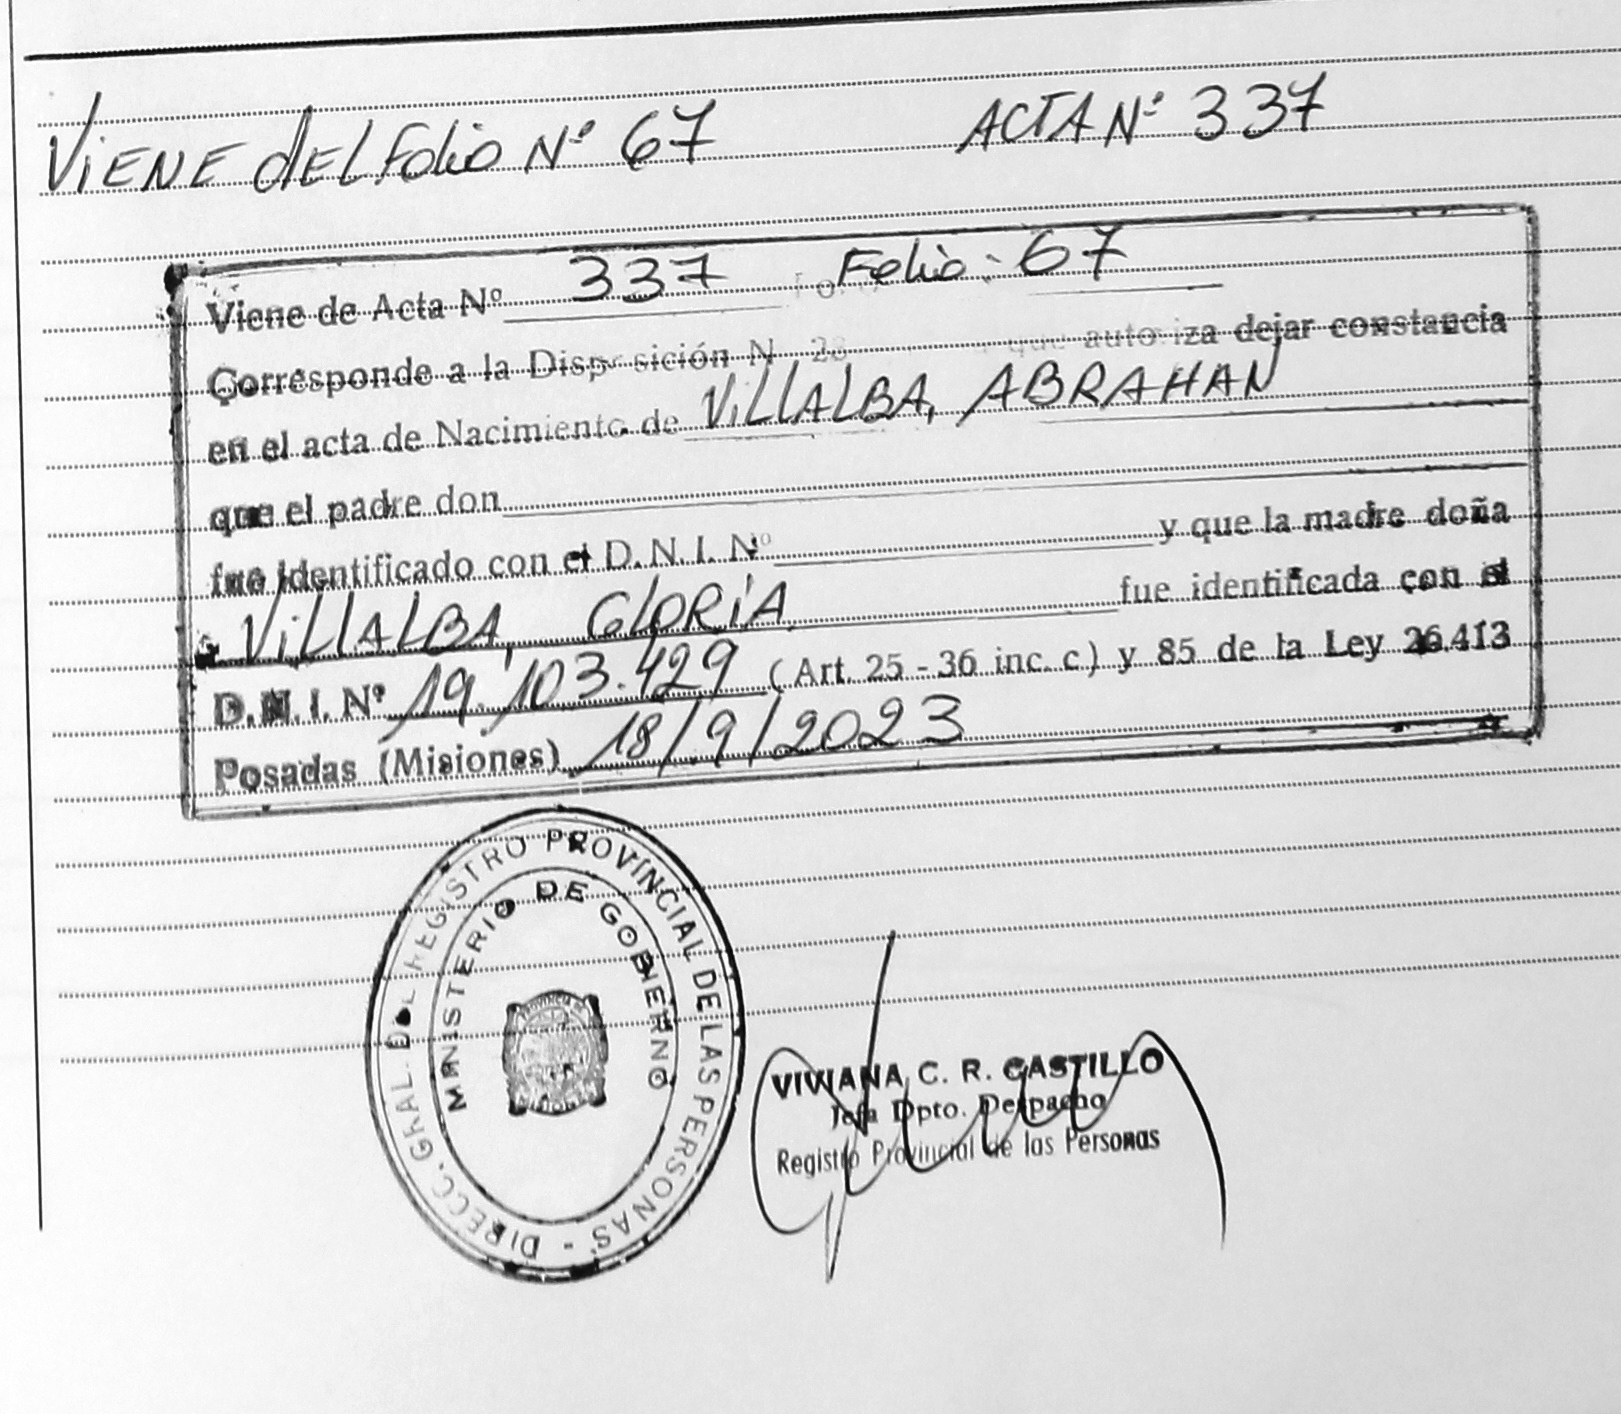 ViENE dEL Folio Nº 67 ACTA Nº 337
Viene de Acta Nº 337 Folio: 67
Corresponde a la Disposición N 28 que autoriza dejar constancia
en el acta de Nacimiento de ViLLALBA, ABRAHAN
que el padre don
fue identificado con el D.N.I. Nº y que la madre doña
ViLLALBA, GLORiA fue identificada con el
D.N.I. Nº 19.103.429 (Art. 25 - 36 inc. c) y 85 de la Ley 26.413
Posadas (Misiones) 18/9/2023
DIRECC. GRAL. DEL REGISTRO PROVINCIAL DE LAS PERSONAS -
MINISTERIO DE GOBIERNO
PROVINCIA DE
MISIONES
VIVIANA C. R. CASTILLO
Jefa Dpto. Despacho
Registro Provincial de las Personas